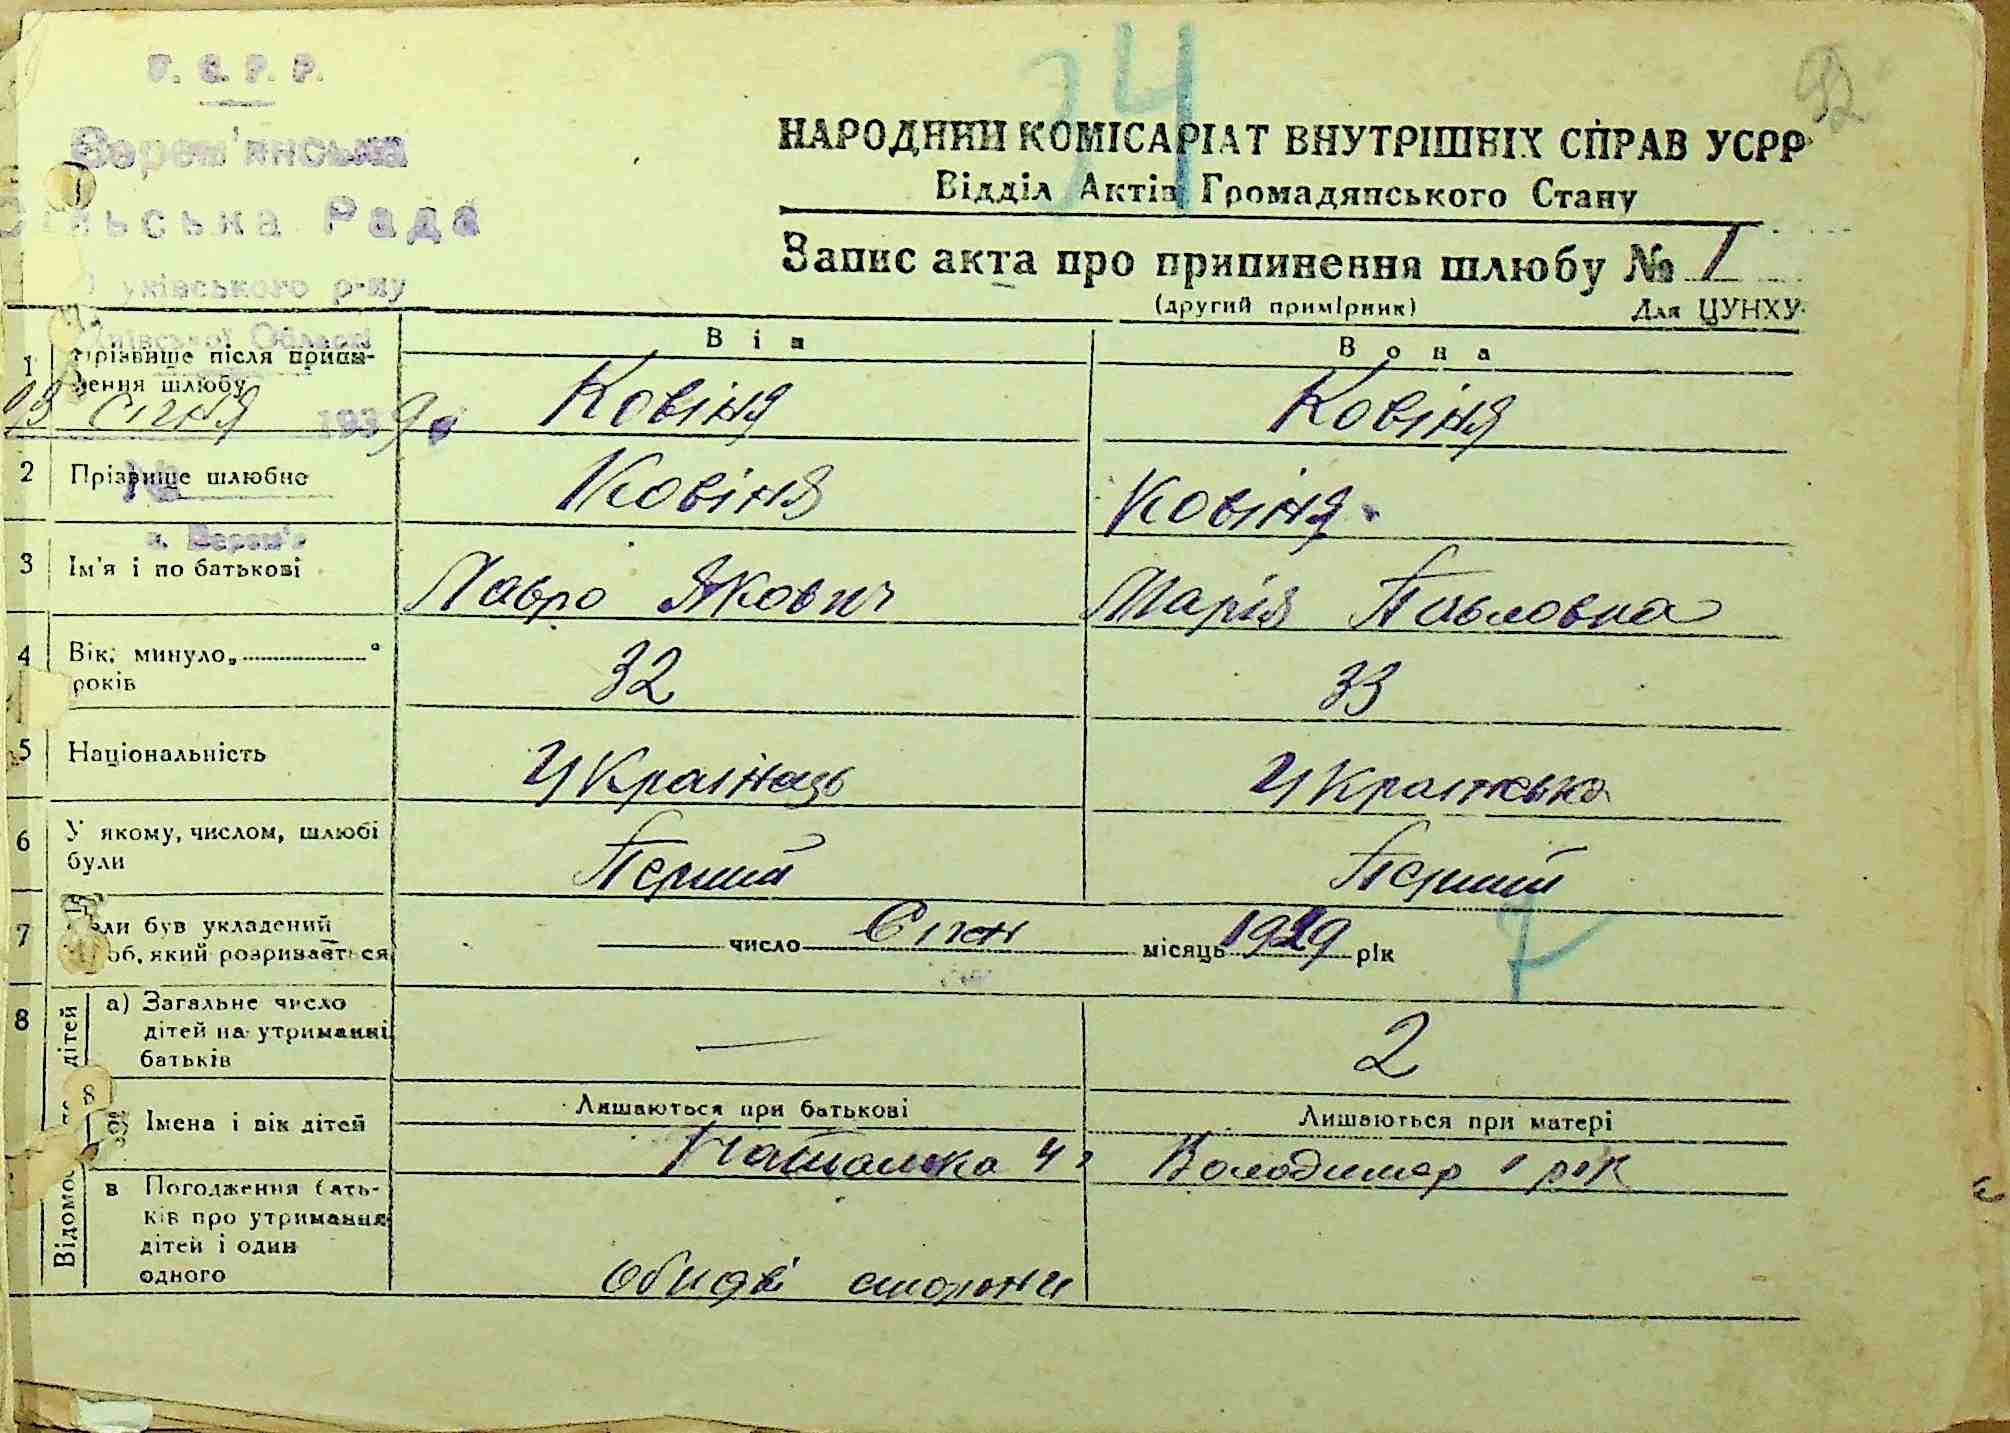 У. С. Р. Р.
Верем'янська
Сільська Рада
уківського р-ну
Київської Області
січня 1939
№
с. Верем'я
34
92
НАРОДНИЙ КОМІСАРІАТ ВНУТРІШНІХ СПРАВ УСРР
Відділ Актів Громадянського Стану
Запис акта про припинення шлюбу № 1
(другий примірник) Для ЦУНХУ
Він Вона
1 Прізвище після припинення шлюбу Ковіня Ковіня
2 Прізвище шлюбне Ковіня Ковіня
3 Ім'я і по батькові Лавро Якович Марія Павловна
4 Вік, минуло „ “ років 32 33
5 Національність Українець Українська
6 У якому, числом, шлюбі були Перший Перший
7 Коли був укладений шлюб, який розривається число Січн місяць 1929 рік
7
8 Відомості про дітей
а) Загальне число дітей на утриманні батьків — 2
Лишаються при батькові Лишаються при матері
Імена і вік дітей Наталка 4 Володимер 1 рік
в Погодження батьків про утримання дітей і один одного обидві сторони